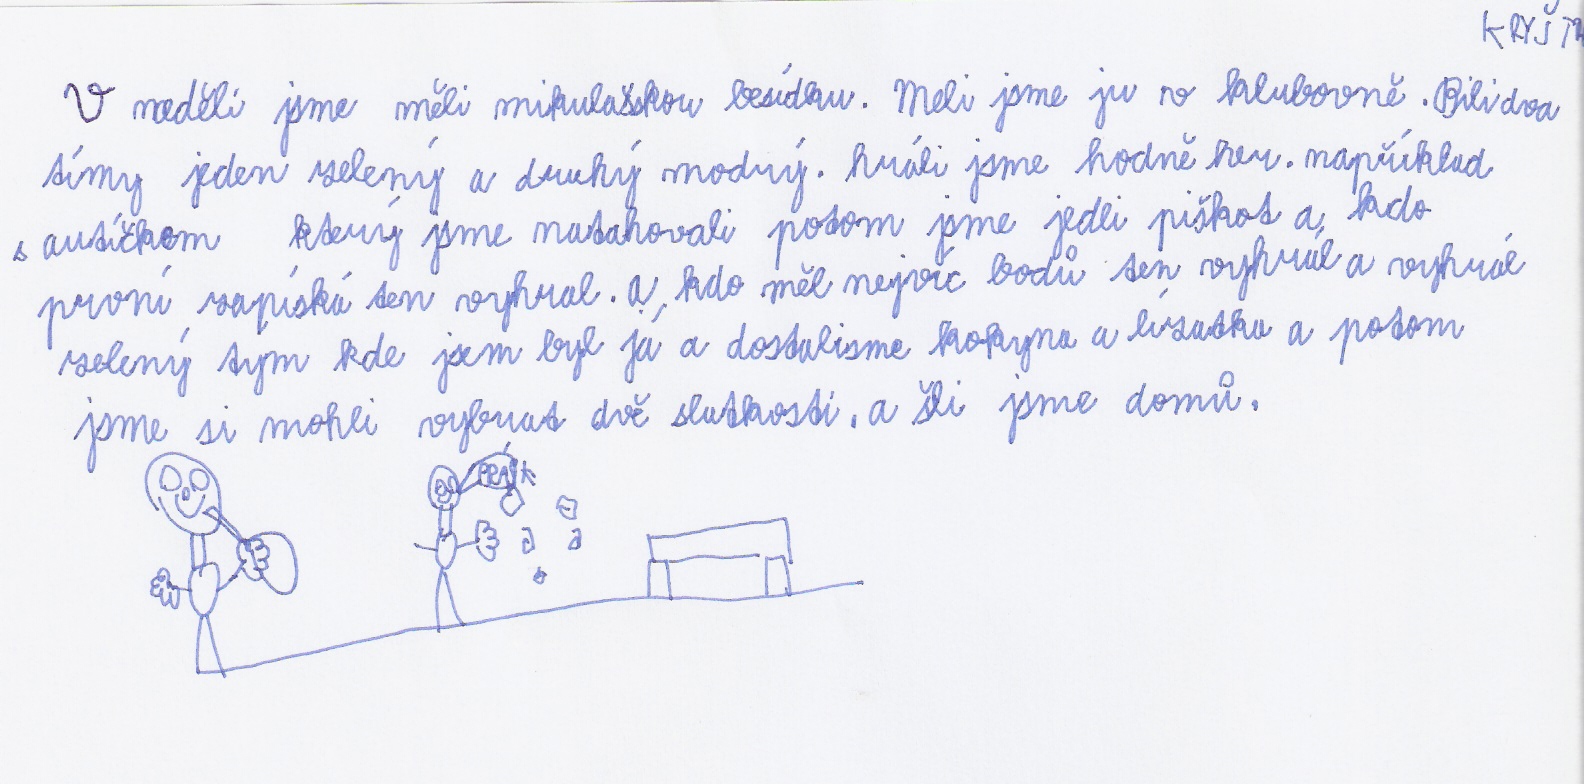 KRYŠT
V neděli jsme měli mikulašskou besídku. Meli jsme ju v klubovně. Bili dva
tímy jeden zelený a druhý modrý. hráli jsme hodně her. například
s autíčkem který jsme natahovali potom jsme jedli piškot a, kdo
první zapíská ten vyhral. a, kdo měl nejvíc bodů ten vyhrál a vyhrál
zelený tym kde jsem byl já a dostalisme kokyna a lízatka a potom
jsme si mohli vybrat dvě slatkosti. a šli jsme domů.
PRÁSK